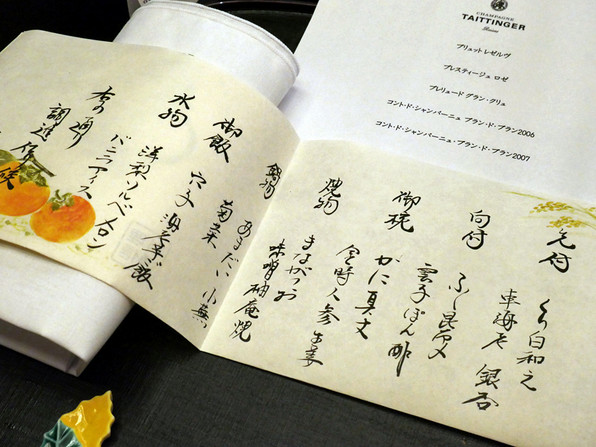 CHAMPAGNE
TAITTINGER
Reims
ブリュット レゼルヴ
プレスティージュ ロゼ
プレリュード グラン・クリュ
コント・ド・シャンパーニュ ブラン・ド・ブラン2006
コント・ド・シャンパーニュ ブラン・ド・ブラン2007
先付
白和え
車海老 銀杏
向付
ふぐ昆布〆
雲子ぽん酢
御椀
かに真丈
金時人参
焼物
まながつお
味噌柚庵焼
鍋物
あまだい 小蕪
菊菜
御飯
穴子 海老芋飯
水物
洋梨ソルベ メロン
バニラアイス
右の通り
調進
候